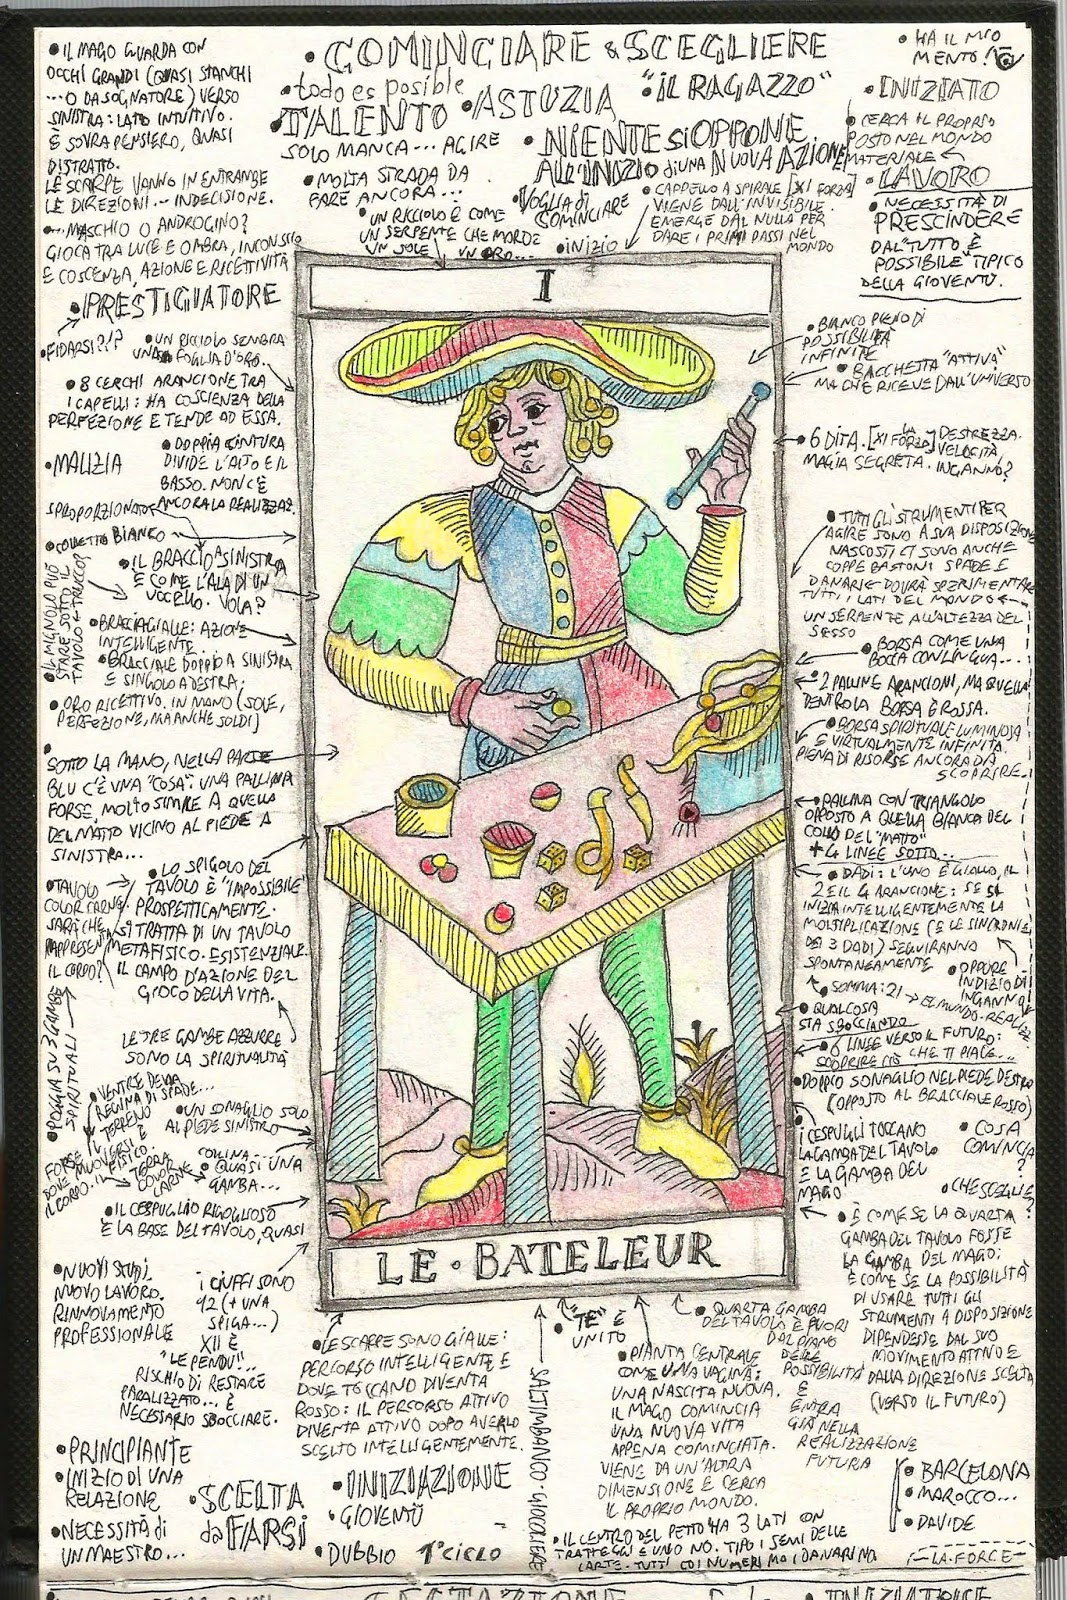 • IL MAGO GUARDA CON
OCCHI GRANDI (QUASI STANCHI
...O DA SOGNATORE) VERSO
SINISTRA: LATO INTUITIVO.
È SOVRAPENSIERO, QUASI
DISTRATTO.
LE SCARPE VANNO IN ENTRAMBE
LE DIREZIONI... INDECISIONE.
...MASCHIO O ANDROGINO?
GIOCA TRA LUCE E OMBRA, INCONSCIO
E COSCENZA, AZIONE E RICETTIVITÀ
• COMINCIARE & SCEGLIERE
• todo es posible
"IL RAGAZZO"
• TALENTO • ASTUZIA
SOLO MANCA... AGIRE
• NIENTE SI OPPONE
ALL'INIZIO di una NUOVA AZIONE
• MOLTA STRADA DA
FARE ANCORA...
• VOGLIA DI
COMINCIARE
• UN RICCIOLO È COME
UN SERPENTE CHE MORDE
UN SOLE UN ORO...
• INIZIO
• CAPPELLO A SPIRALE [XI FORZA]
VIENE DALL'INVISIBILE.
EMERGE DAL NULLA PER
DARE I PRIMI PASSI NEL
MONDO
• HA IL MIO
MENTO!
• INIZIATO
• CERCA IL PROPRIO
POSTO NEL MONDO
MATERIALE
• LAVORO
• NECESSITÀ DI
PRESCINDERE
DAL "TUTTO È
POSSIBILE" TIPICO
DELLA GIOVENTÙ.
• PRESTIGIATORE
• FIDARSI?!?
• UN RICCIOLO SEMBRA
UNA FOGLIA D'ORO.
• 8 CERCHI ARANCIONE TRA
I CAPELLI: HA COSCIENZA DELLA
PERFEZIONE E TENDE AD ESSA.
• DOPPIA CINTURA
DIVIDE L'ALTO E IL
BASSO. NON C'È
ANCORA LA REALIZZAZ.
• MALIZIA
SPROPORZIONATO
• COLLETTO BIANCO
• IL BRACCIO A SINISTRA
È COME L'ALA DI UN
UCCELLO. VOLA?
• IL MIGNOLO PUÒ
STARE SOTTO IL
TAVOLO
• BRACCIA GIALLE: AZIONE
INTELLIGENTE.
• BRACCIALE DOPPIO A SINISTRA
E SINGOLO A DESTRA;
• ORO RICETTIVO. IN MANO (SOLE,
PERFEZIONE, MA ANCHE SOLDI)
• SOTTO LA MANO, NELLA PARTE
BLU C'È UNA "COSA": UNA PALLINA
FORSE, MOLTO SIMILE A QUELLA
DEL MATTO VICINO AL PIEDE A
SINISTRA...
• LO SPIGOLO DEL
TAVOLO È "IMPOSSIBILE"
PROSPETTICAMENTE.
SI TRATTA DI UN TAVOLO
METAFISICO. ESISTENZIALE.
IL CAMPO D'AZIONE DEL
GIOCO DELLA VITA.
• TAVOLO
COLOR CARNE
SARÀ CHE
RAPPRESENTA
IL CORPO?
LE TRE GAMBE AZZURRE
SONO LA SPIRITUALITÀ
• POGGIA SU 3 GAMBE
SPIRITUALI
• VENTRE DELLA
REGINA DI SPADE...
• UN SONAGLIO SOLO
AL PIEDE SINISTRO
COLLINA...
• QUASI UNA
GAMBA...
• IL CESPUGLIO RIGOGLIOSO
È LA BASE DEL TAVOLO, QUASI
• NUOVI STUDI,
NUOVO LAVORO.
RINNOVAMENTO
PROFESSIONALE
I CIUFFI SONO
12 (+ UNA
SPIGA...)
XII È
"LE PENDU"...
RISCHIO DI RESTARE
PARALIZZATO... È
NECESSARIO SBOCCIARE.
• PRINCIPIANTE
• INIZIO DI UNA
RELAZIONE
• NECESSITÀ di
UN MAESTRO...
• SCELTA
da FARSI
I
LE • BATELEUR
• BIANCO PIENO DI
POSSIBILITÀ
INFINITE
• BACCHETTA "ATTIVA"
MA CHE RICEVE DALL'UNIVERSO
• 6 DITA. [XI LA FORZA] DESTREZZA.
VELOCITÀ,
MAGIA SEGRETA. INGANNO?
• TUTTI GLI STRUMENTI PER
AGIRE SONO A SUA DISPOSIZIONE
NASCOSTI CI SONO ANCHE
COPPE BASTONI SPADE E
DANARI E DOVRÀ SPERIMENTARE
TUTTI I LATI DEL MONDO
UN SERPENTE ALL'ALTEZZA DEL
SESSO
• BORSA COME UNA
BOCCA CON LINGUA...
• 2 PALLINE ARANCIONI, MA QUELLA
DENTRO LA BORSA È ROSSA.
• BORSA SPIRITUALE LUMINOSA
E VIRTUALMENTE INFINITA
PIENA DI RISORSE ANCORA DA
SCOPRIRE.
• PALLINA CON TRIANGOLO
OPPOSTO A QUELLA BIANCA DEL
COLLO DEL "MATTO"
+ 4 LINEE SOTTO...
• DADI: L'UNO È GIALLO, IL
2 E IL 4 ARANCIONE: SE SI
INIZIA INTELLIGENTEMENTE LA
MOLTIPLICAZIONE (E LE SINCRONIE
DEI 3 DADI) SEGUIRANNO
SPONTANEAMENTE
• OPPURE
INDIZIO DI
INGANNO
• SOMMA: 21 → EL MUNDO.
• QUALCOSA
STA SBOCCIANDO
• 6 LINEE VERSO IL FUTURO:
SCOPRIRE CIÒ CHE TI PIACE...
• DOPPIO SONAGLIO NEL PIEDE DESTRO
(OPPOSTO AL BRACCIALE ROSSO)
• I CESPUGLI TOCCANO
LA GAMBA DEL TAVOLO
E LA GAMBA DEL
MAGO
• COSA
COMINCIA
?
• CHE SCEGLIE?
• È COME SE LA QUARTA
GAMBA DEL TAVOLO FOSSE
LA GAMBA DEL MAGO:
È COME SE LA POSSIBILITÀ
DI USARE TUTTI GLI
STRUMENTI A DISPOSIZIONE
DIPENDESSE DAL SUO
MOVIMENTO ATTIVO E
DALLA DIREZIONE SCELTA
(VERSO IL FUTURO)
• LE SCARPE SONO GIALLE:
PERCORSO INTELLIGENTE E
DOVE TOCCANO DIVENTA
ROSSO: IL PERCORSO ATTIVO
DIVENTA ATTIVO DOPO AVERLO
SCELTO INTELLIGENTEMENTE.
• INIZIAZIONE
• GIOVENTÙ
• DUBBIO 1° CICLO
SALTIMBANCO • GIOCOLIERE
• "TE" È
UNITO
• QUARTA GAMBA
DEL TAVOLO È FUORI
DAL PIANO
DELLE
POSSIBILITÀ
E
ENTRA
GIÀ NELLA
REALIZZAZIONE
FUTURA
• PIANTA CENTRALE
COME UNA VAGINA:
UNA NASCITA NUOVA.
IL MAGO COMINCIA
UNA NUOVA VITA
APPENA COMINCIATA.
VIENE DA UN'ALTRA
DIMENSIONE E CERCA
IL PROPRIO MONDO.
• IL CENTRO DEL PETTO HA 3 LATI CON
TRATTEGGI E UNO NO. TIPO I SEMI DELLE
CARTE. TUTTI COI NUMERI MA I DANARI NO
• BARCELONA
• MAROCCO...
• DAVIDE
LA FORCE